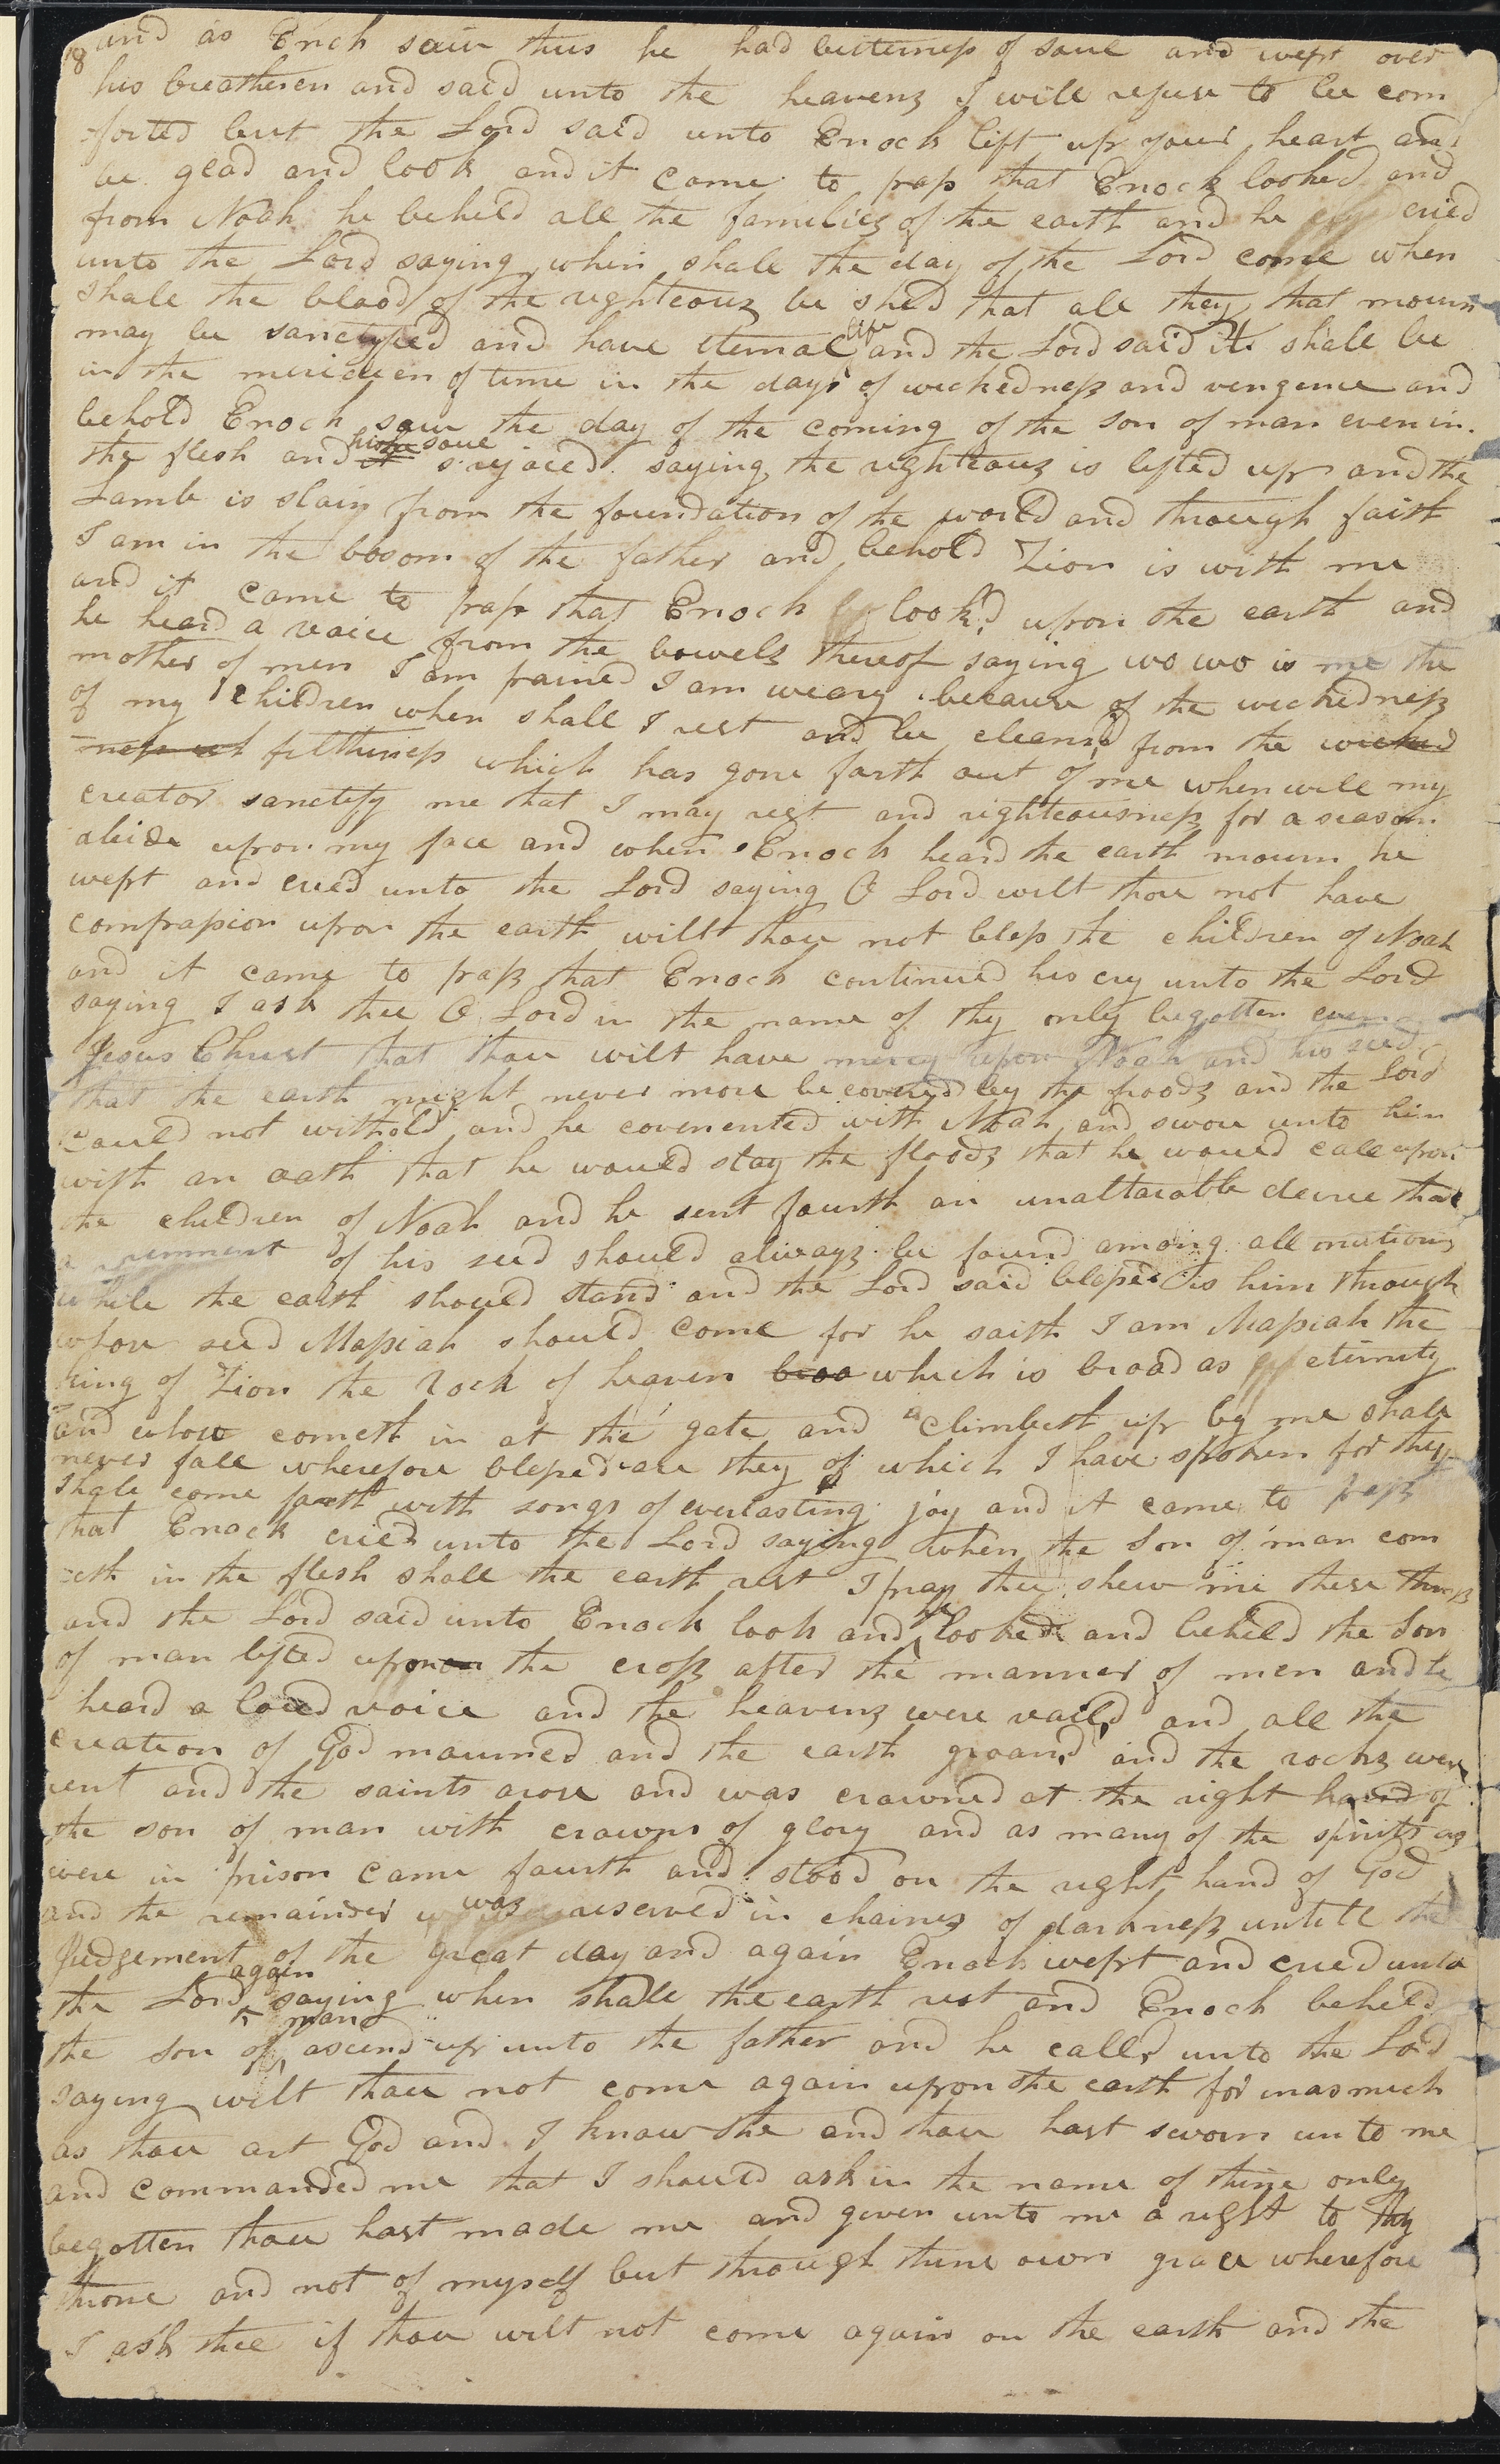 18
and as Enoch saw thus he had bitterness of soul and wept over
his breatheren and said unto the heavens I will refuse to be com
-forted but the Lord said unto Enoch lift up your heart and
be glad and look and it came to pass that Enock looked and
from Noah he beheld all the families of the earth and he cried
unto the Lord saying when shall the day of the Lord come when
shall the blood of the righteous be shed that all they that mourn
may be sanctified and have eternal life and the Lord said it shall be
in the meridien of time in the days of wickedness and vengence and
behold Enoch saw the day of the coming of the son of man even in
the flesh and his soul rejoiced saying the righteous is lifted up and the
Lamb is slain from the foundation of the world and through faith
I am in the bosom of the father and behold Zion is with me
and it came to pass that Enoch look'd upon the earth and
he heard a voice from the bowels thereof saying wo wo is me the
mother of men I am pained I am weary because of the wickedness
of my children when shall I rest and be cleansd from the wicked
ness filthiness which has gone forth out of me when will my
creator sanctify me that I may rest and righteousness for a season
abide upon my face and when Enoch heard the earth mourn he
wept and cried unto the Lord saying O Lord wilt thou not have
compassion upon the earth wilt thou not bless the children of Noah
and it came to pass that Enoch continued his cry unto the Lord
saying I ask thee O Lord in the name of thy only begotten even
Jesus Christ that thou wilt have mercy upon Noah and his seed
that the earth might never more be covered by the floods and the Lord
could not withold and he covenented with Noah and swore unto him
with an oath that he would stay the floods that he would call upon
the children of Noah and he sent fourth an unaltarable decree that
a remnent of his seed should always be found among all nations
while the earth should stand and the Lord said blessed is him through
whose seed Massiah should come for he saith I am Massiah the
king of Zion the Rock of heaven broa which is broad as eternity
and whoso cometh in at the gate and climbeth up by me shall
never fall wherefore blessed are they of which I have spoken for they
shall come forth with songs of everlasting joy and it came to pass
that Enock cried unto the Lord saying when the Son of man com
-eth in the flesh shall the earth rest I pray thee shew me these things
and the Lord said unto Enoch look and he looked and beheld the Son
of man lifted upon the cross after the manner of men and he
heard a loud voice and the heavens were vailed and all the
creation of God mourned and the earth groand and the rocks were
rent and the saints arose and was crowned at the right hand of
the son of man with crowns of glory and as many of the spirits as
were in prison came fourth and stood on the right hand of God
and the remainder was reserved in chaines of darkness untill the
Judgement of the great day and again Enoch wept and cried unto
the Lord again saying when shall the earth rest and Enoch beheld
the son of man ascend up unto the father and he calld unto the Lord
saying wilt thou not come again upon the earth for inasmuch
as thou art God and I know the and thou hast sworn unto me
and commanded me that I should ask in the name of thine only
begotten thou hast made me and given unto me a right to thy
throne and not of myself but through thine own grace wherefore
I ask thee if thou wilt not come again on the earth and the